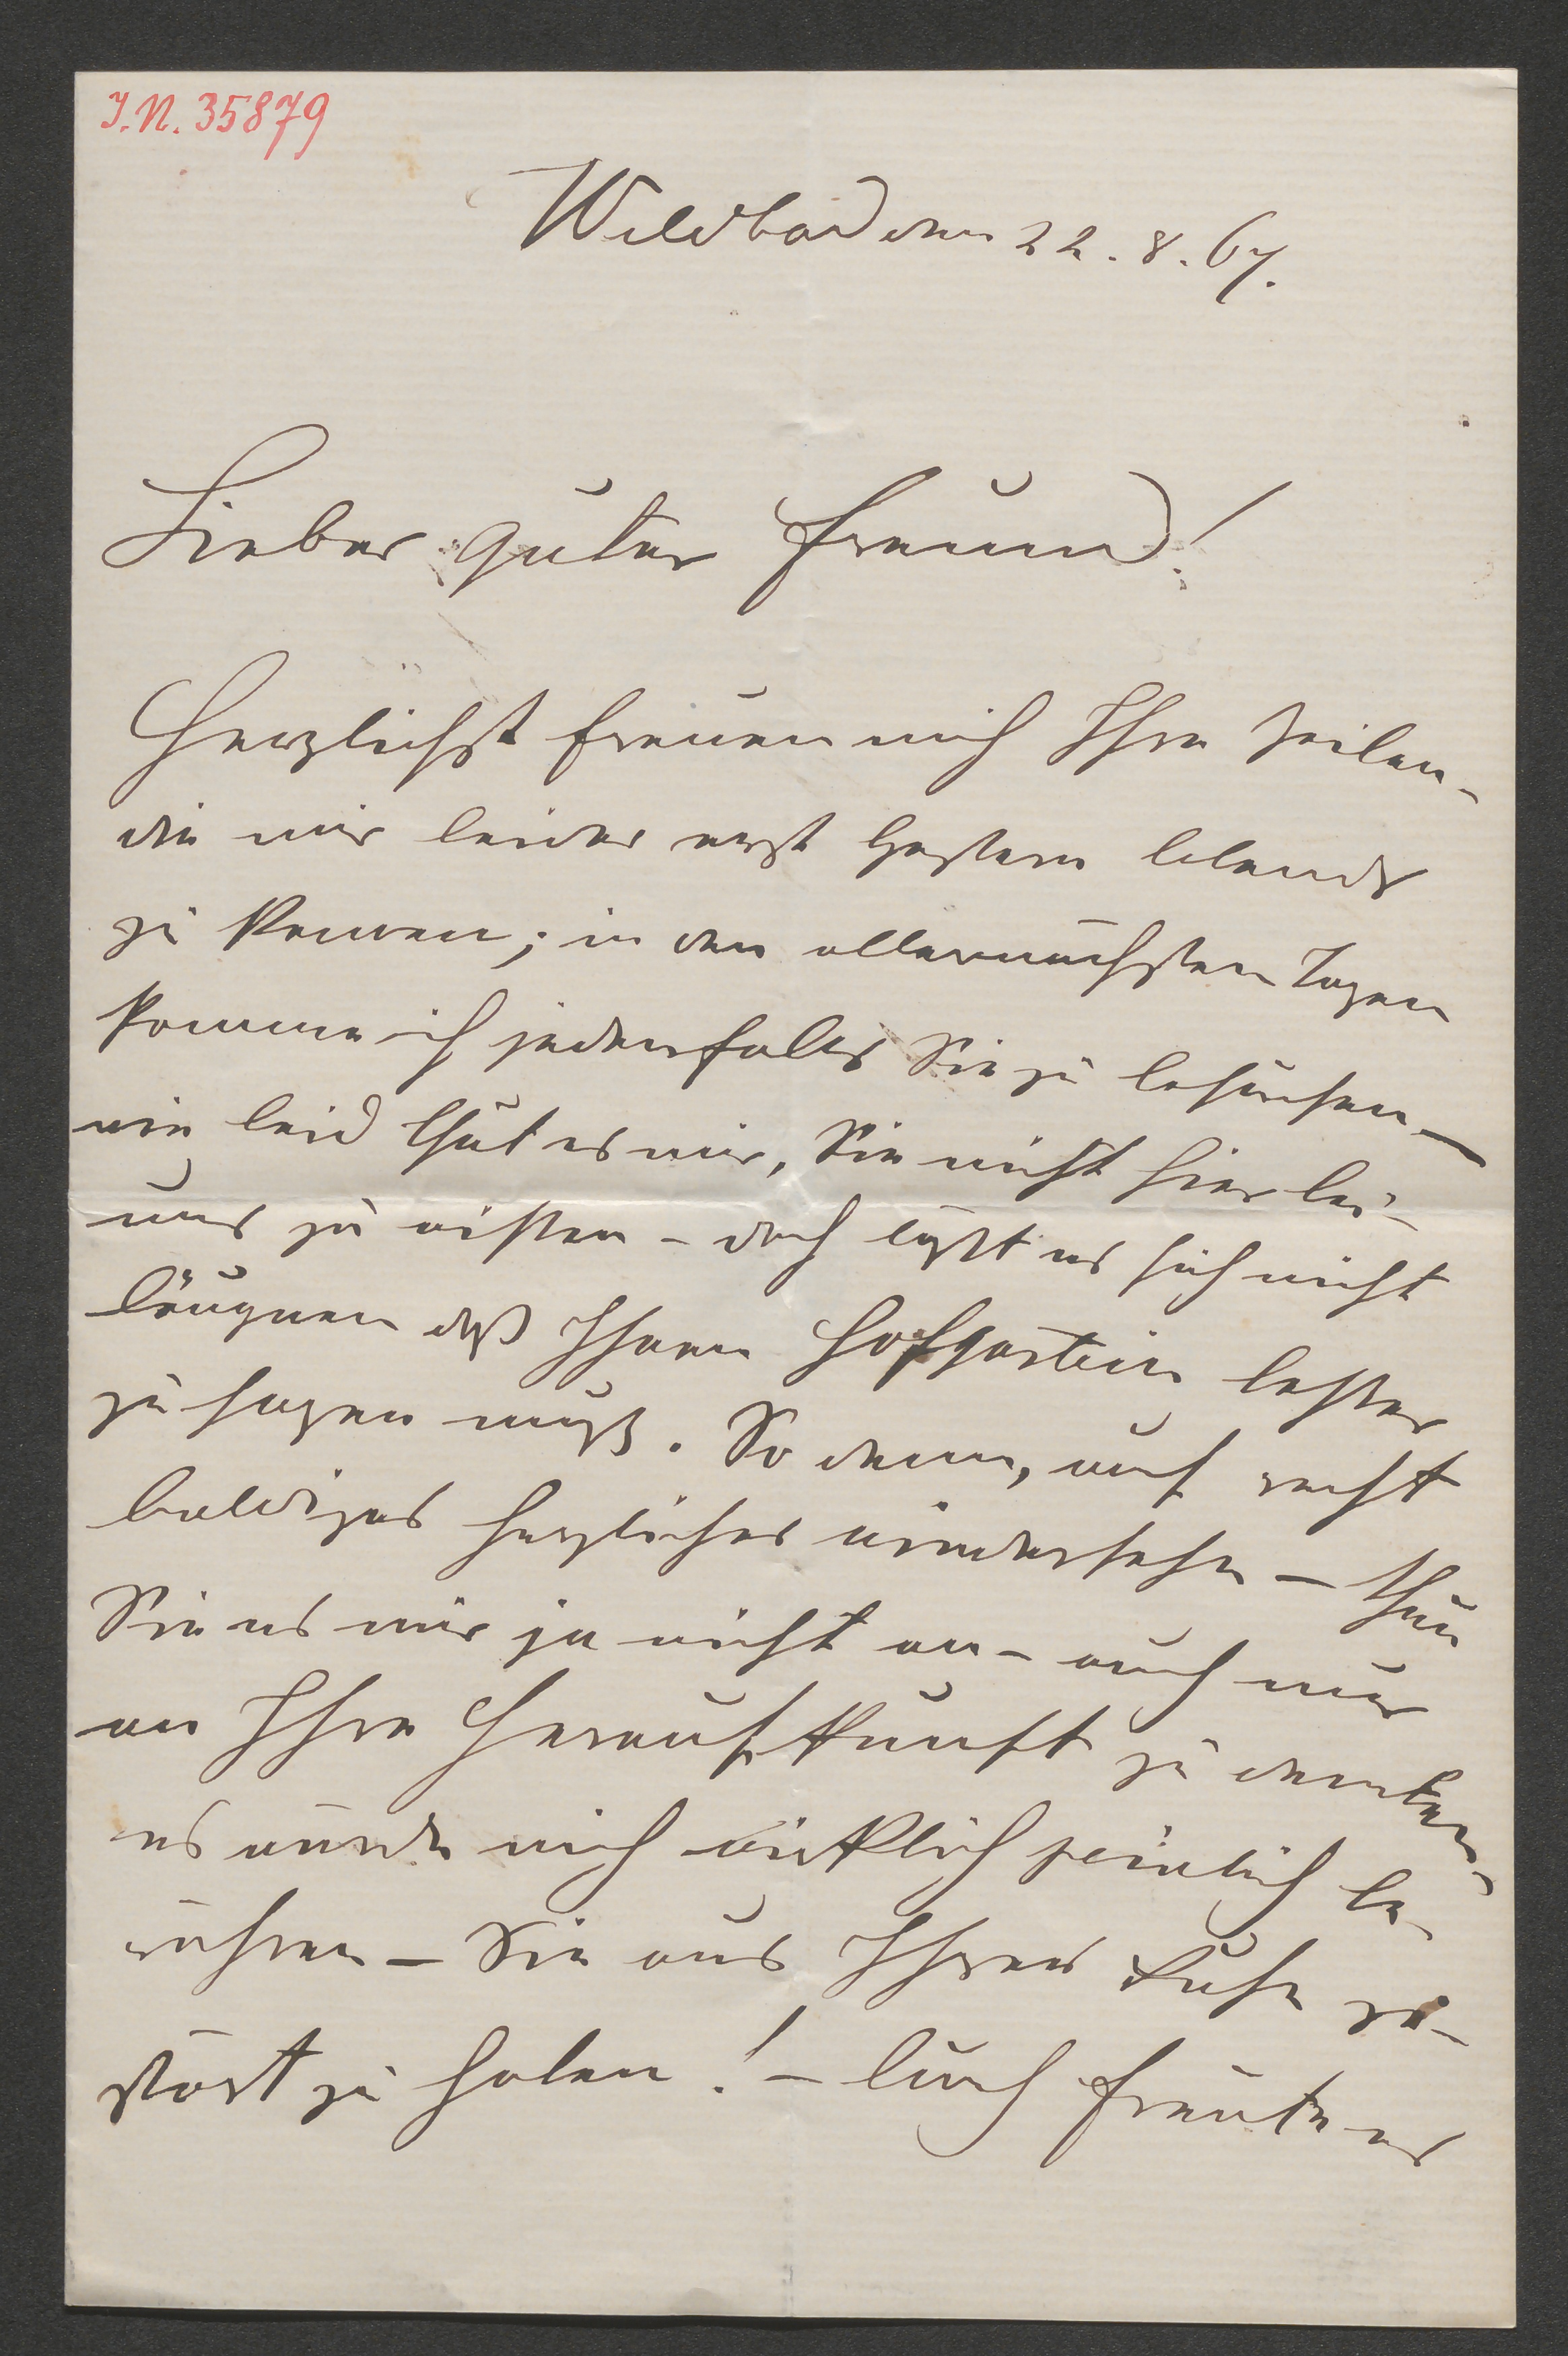 I.N. 35879
Wildbad den 22.8.67.
Lieber guter Freund!
Herzlichst freuen mich Ihre Zeilen-
die mir leider erst gestern Abends
zu kamen; in den allernächsten Tagen
komme ich jedenfalls Sie zu besuchen —
wie leid thut es mir, Sie nicht hier bei
uns zu wissen - doch läßt es sich nicht
läugnen daß Ihnen Hofgastein besser
zu sagen muß. So denn, auf recht
baldiges herzliches wiedersehn — thun
Sie es mir ja nicht an - auch nur
an Ihre Heraufkunft zu denken,
es würde mich wirklich peinlich be-
rühren — Sie aus Ihrer Ruhe ge-
stört zu haben! — Auch freute es